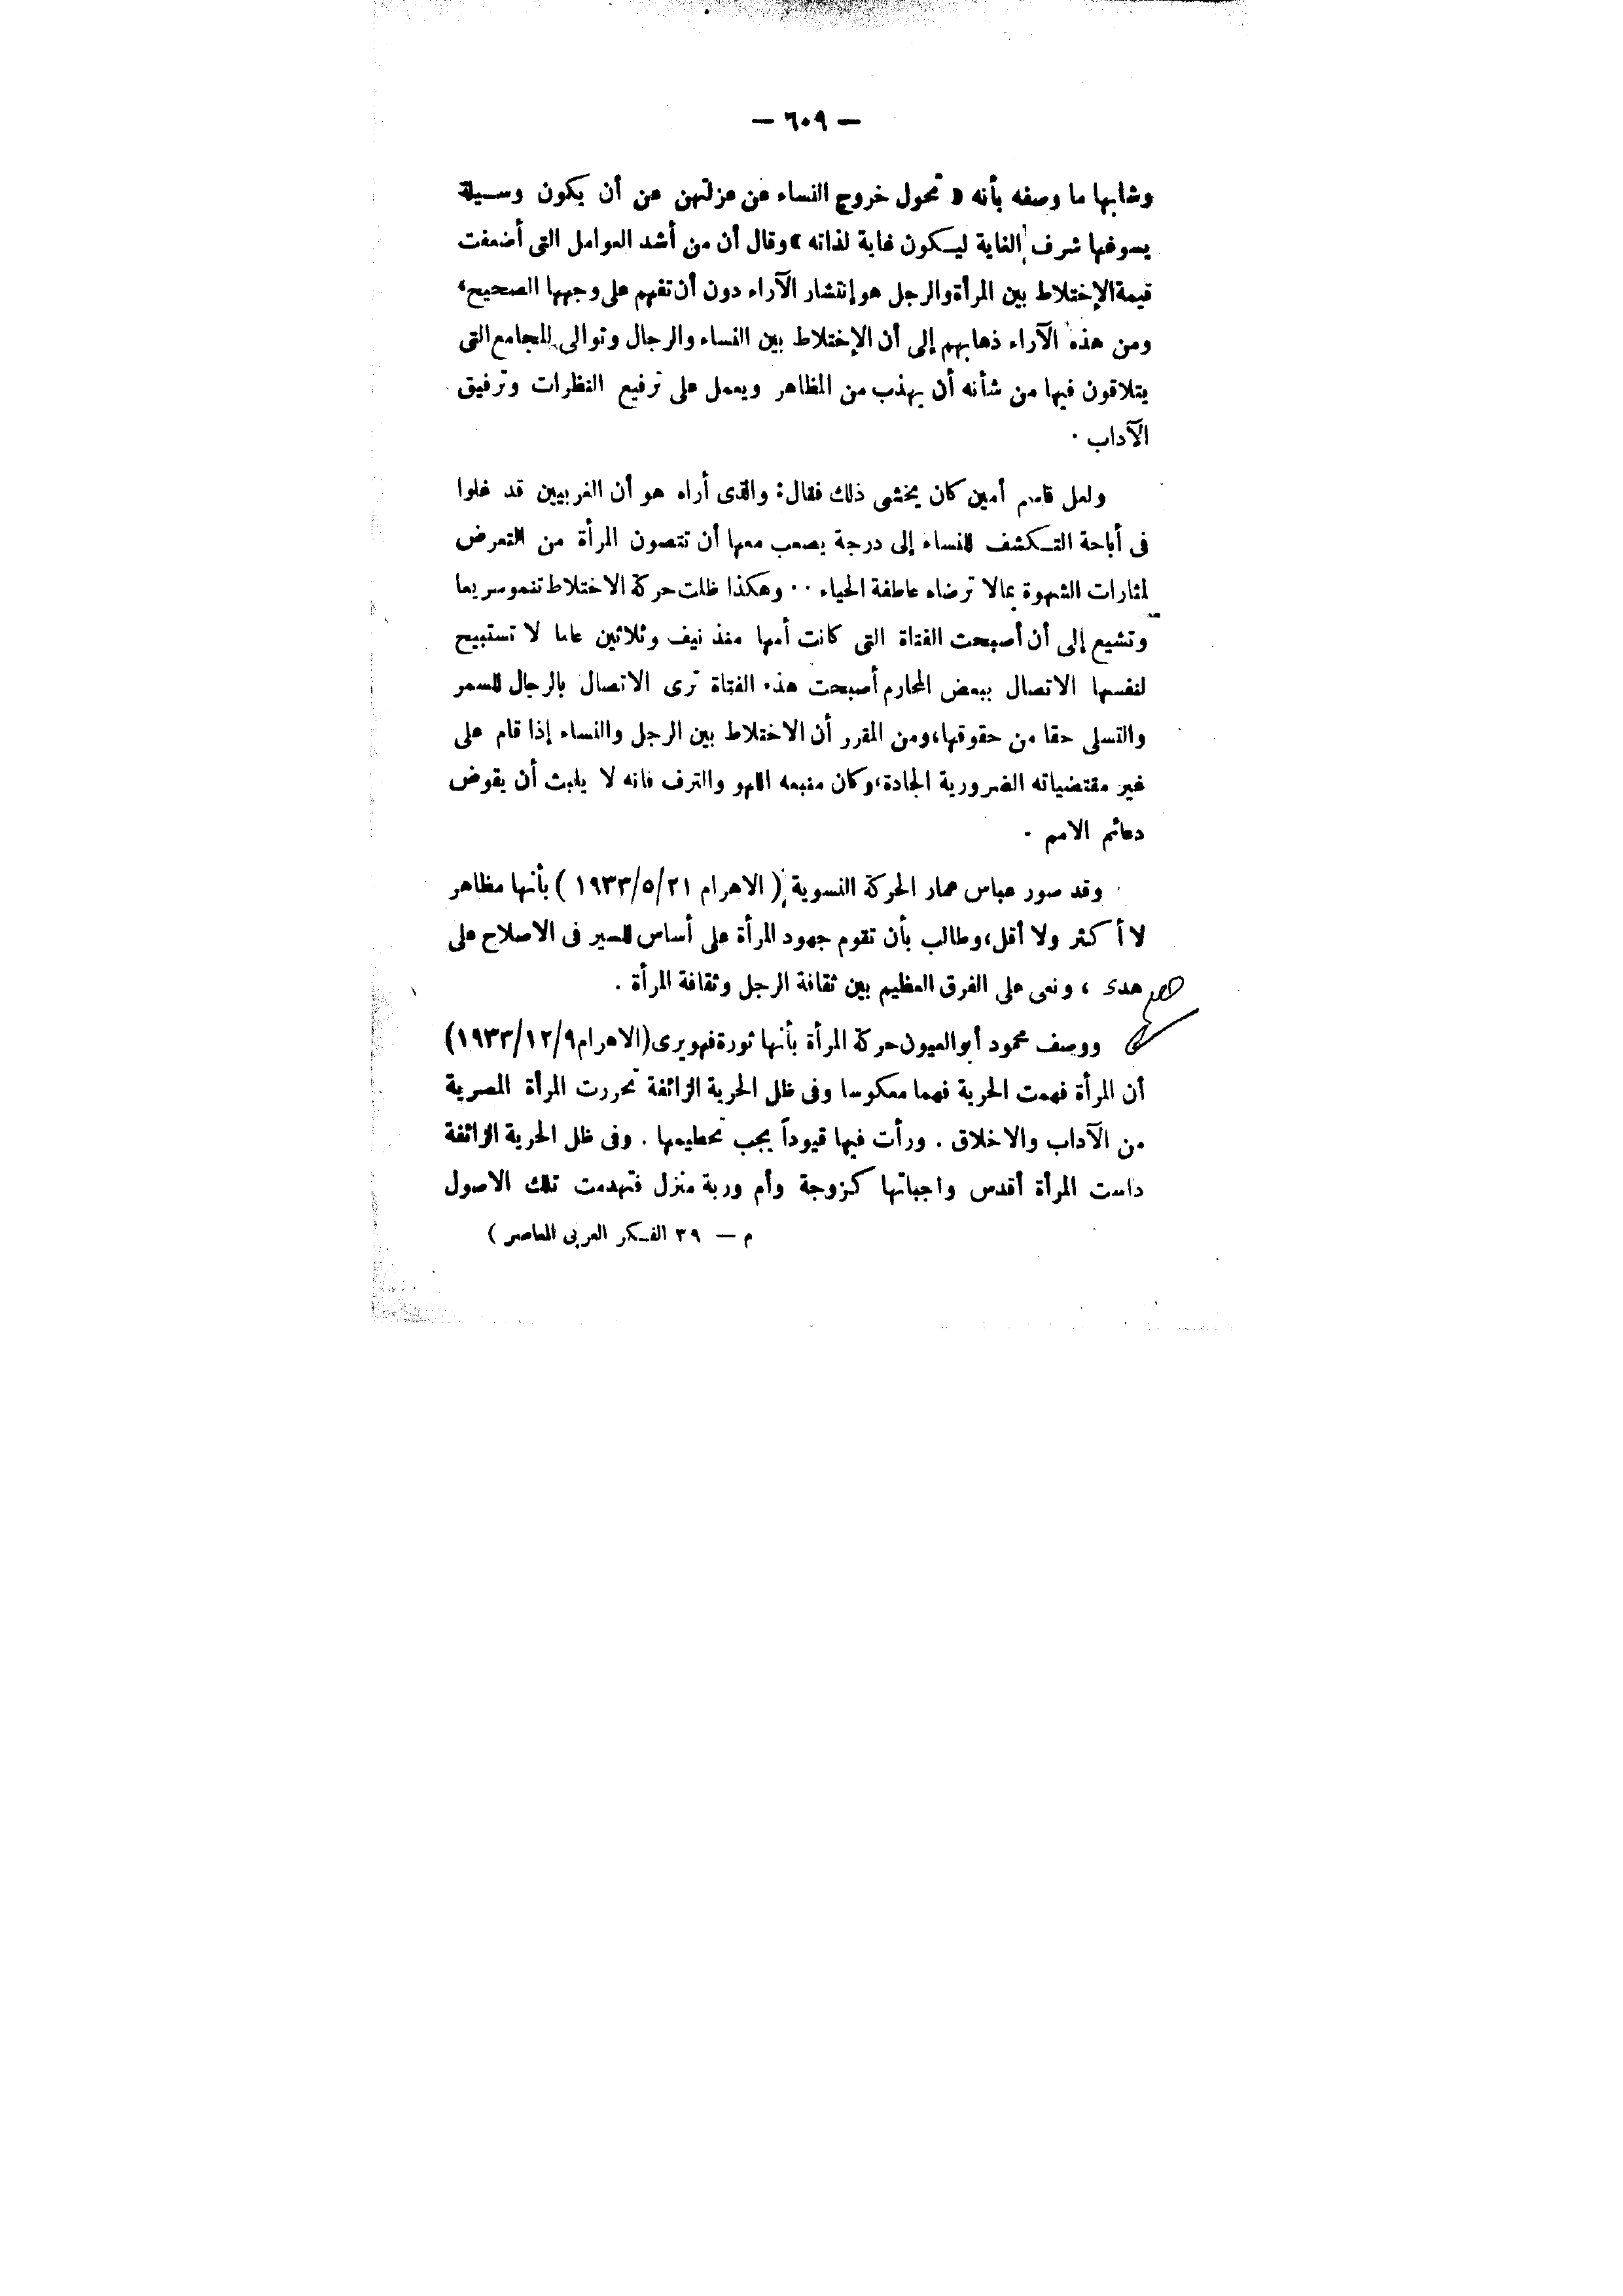 — ٦٠٩ —
وشابها ما وصفه بأنه « تحول خروج النساء عن عزلتهن عن أن يكون وسيلة
يسوغها شرف الغاية ليكون غاية لذاته » وقال أن من أشد العوامل التى أضعفت
قيمة الإختلاط بين المرأة والرجل هو إنتشار الآراء دون أن تفهم على وجهها الصحيح،
ومن هذه الآراء ذهابهم إلى أن الإختلاط بين النساء والرجال وتوالى المجامع التى
يتلاقون فيها من شأنه أن يهذب من المظاهر ويعمل على ترفيع النظرات وترفيق
الآداب .
ولعل قاسم أمين كان يخشى ذلك فقال: والذى أراه هو أن الغربيين قد غلوا
فى أباحة التكشف للنساء إلى درجة يصعب معها أن تتصون المرأة من التعرض
لمثارات الشهوة بمالا ترضاه عاطفة الحياء .. وهكذا ظلت حركة الاختلاط تنمو سريعا
وتشيع إلى أن أصبحت الفتاة التى كانت أمها منذ نيف وثلاثين عاما لا تستبيح
لنفسها الاتصال ببعض المحارم أصبحت هذه الفتاة ترى الاتصال بالرجال للسمر
والتسلى حقا من حقوقها، ومن المقرر أن الاختلاط بين الرجل والنساء إذا قام على
غير مقتضياته الضرورية الجادة، وكان منبعه اللهو والترف فانه لا يلبث أن يقوض
دعائم الامم .
وقد صور عباس عمار الحركة النسوية ( الاهرام ١٩٣٣/٥/٢١ ) بأنها مظاهر
لا أكثر ولا أقل، وطالب بأن تقوم جهود المرأة على أساس للسير فى الاصلاح على
هدى ، ونعى على الفرق العظيم بين ثقافة الرجل وثقافة المرأة .
ووصف محمود أبو العيون حركة المرأة بأنها ثورة فهو يرى (الاهرام ١٩٣٣/١٢/٩)
أن المرأة فهمت الحرية فهما معكوسا وفى ظل الحرية الزائفة تحررت المرأة المصرية
من الآداب والاخلاق . ورأت فيها قيوداً يجب تحطيمها . وفى ظل الحرية الزائفة
داست المرأة أقدس واجباتها كزوجة وأم وربة منزل فتهدمت تلك الاصول
م — ٣٩ الفكر العربى المعاصر )